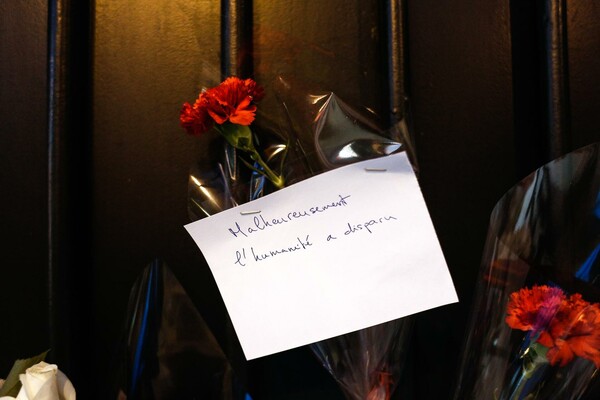 Malheureusement
l'humanité a disparu